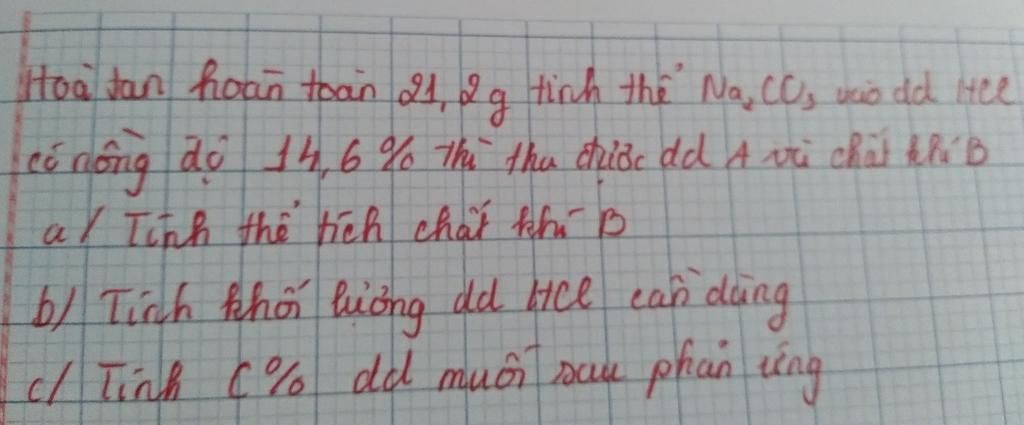 Hoà tan hoàn toàn 21,2g tinh thể Na₂CO₃ vào dd HCl
có nồng độ 14,6% thì thu được dd A và chất khí B
a/ Tính thể tích chất khí B
b/ Tính khối lượng dd HCl cần dùng
c/ Tính C% dd muối sau phản ứng